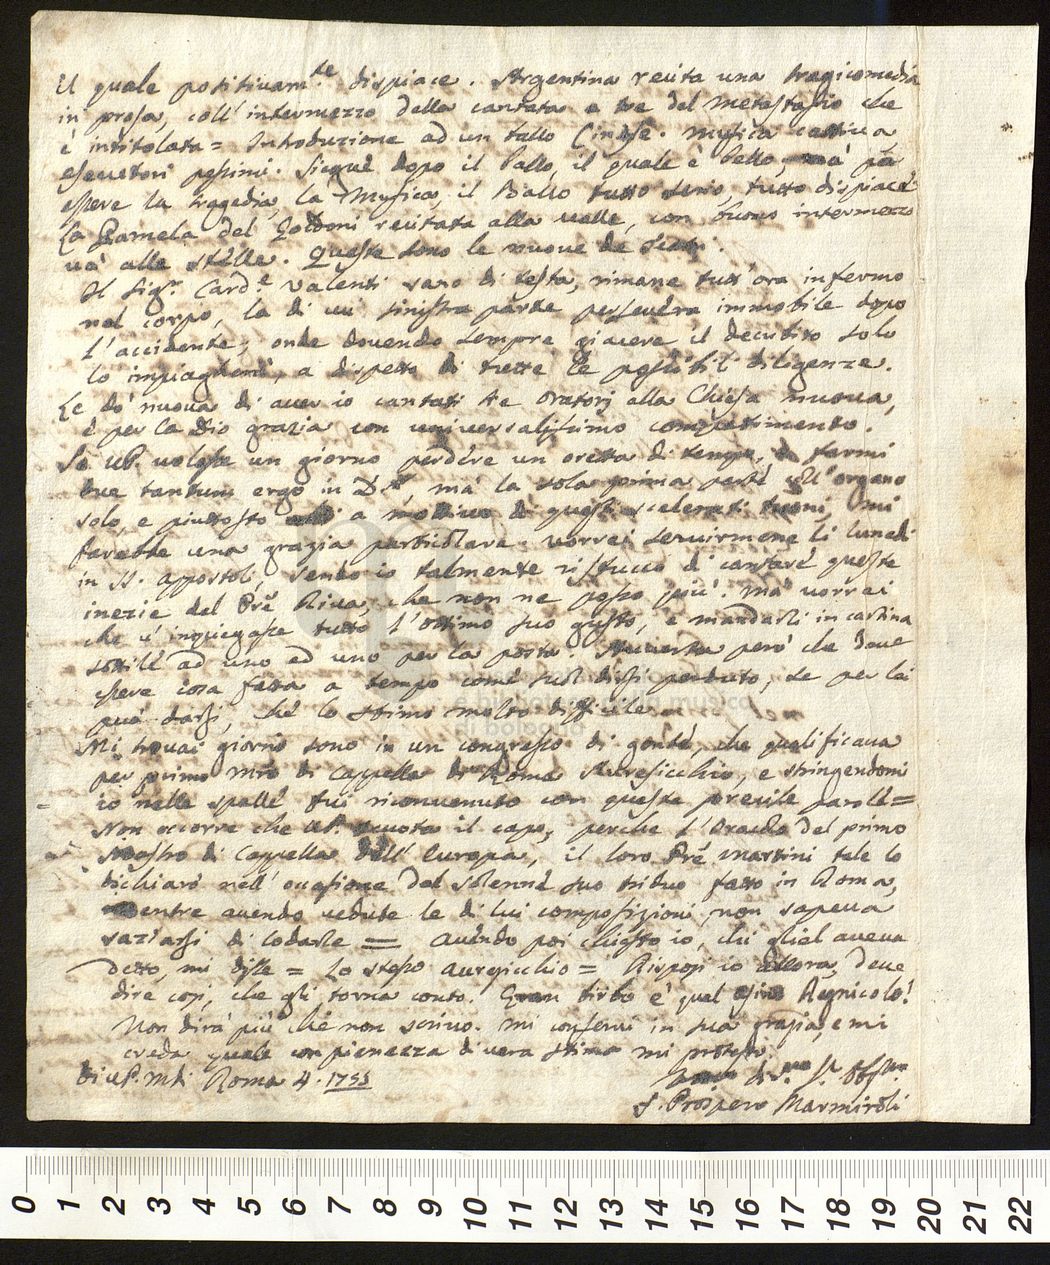 Il quale positivam.te dispiace. Argentina recita una tragicomedia
in prosa, coll'intermezzo della cantata a tre del Metastasio che
è intitolata = Introduzione ad un ballo Cinese. Musica cattiva
esecutori pessimi. Siegue dopo il ballo, il quale è bello, mà p
essere la tragedia, la Musica, il Ballo tutto serio, tutto dispiace
La Pamela del Goldoni recitata alla Valle, con buono intermezzo
và alle stelle. Queste sono le nuove de
Il Sig.r Card.e Valenti sano di testa, rimane tutt'ora infermo
nel corpo, la di cui sinistra parte persevera immobile dopo
l'accidente; onde dovendo sempre giacere il decubito solo
lo impiagherà, a dispetto di tutte le possibili diligenze.
Le dò nuova di aver io cantati tre Oratorj alla Chiesa nuova,
è per la Dio grazia con universalissimo compatimento.
Se V.P. volesse un giorno perdere un oretta di tempo, farmi
due tantum ergo in D, mà la sola prima parte coll'organo
solo, e piuttosto a motivo di questi scelerati tuoni, mi
farebbe una grazia particolare. Vorrei servirmene li lunedì
in SS. Appostoli, sendo io talmente ristucco di cantare queste
inezie del Prè Riva, che non ne posso più: mà vorrei
che v'impiegasse tutto l'ottimo suo gusto, e mandarli in cartina
sottile ad uno ad uno per la posta. Avverta però che deve
essere cosa fatta a tempo come suol dirsi perduto, se per lei
può darsi, chè lo stimo molto difficile.
Mi trovai giorni sono in un congresso di gente, che qualificava
per primo Mro di Cappella di Roma Auresicchio, e stringendomi
io nelle spalle fui riconvenuto con queste precise parole=
Non occorre che V.P. scuota il capo, perche l'Oracolo del primo
Maestro di Cappella dell'Europa, il loro Prè Martini tale lo
dichiarò nell'occasione del solenne suo triduo fatto in Roma,
mentre avendo vedute le di lui composizioni, non sapeva
saziarsi di lodarle = Avendo poi chiesto io, chi gliel aveva
detto, mi disse = Lo stesso Auresicchio = Risposi io allora, deve
dire così, che gli torna conto. Gran birbo è quel Regnicolo!
Non dirà più chè non scrivo. Mi conservi in sua grazia, e mi
creda quale con pienezza di vera stima mi protesto
Di V.P. M.R. Roma 4. 1755
F. Prospero Marmiroli
0 1 2 3 4 5 6 7 8 9 10 11 12 13 14 15 16 17 18 19 20 21 22